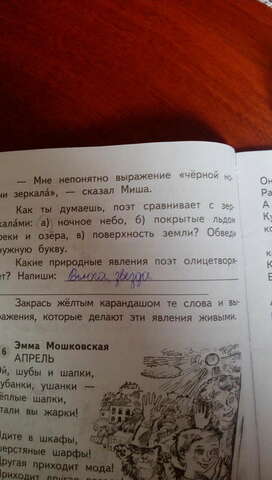 — Мне непонятно выражение «чёрной но-
чи зеркала́», — сказал Миша.
Как ты думаешь, поэт сравнивает с зер-
калами: а) ночное небо, б) покрытые льдом
реки и озёра, в) поверхность земли? Обведи
нужную букву.
Какие природные явления поэт олицетворя-
ет? Напиши: звезда
Закрась жёлтым карандашом те слова и вы-
ражения, которые делают эти явления живыми.
6 Эмма Мошковская
АПРЕЛЬ
Эй, шубы и шапки,
убанки, ушанки —
ёплые шапки,
тали вы жарки!
дите в шкафы,
ерстяные шарфы!
Другая приходит мода!
Приходит другая
Он
Ра
А
К
В
К
Е